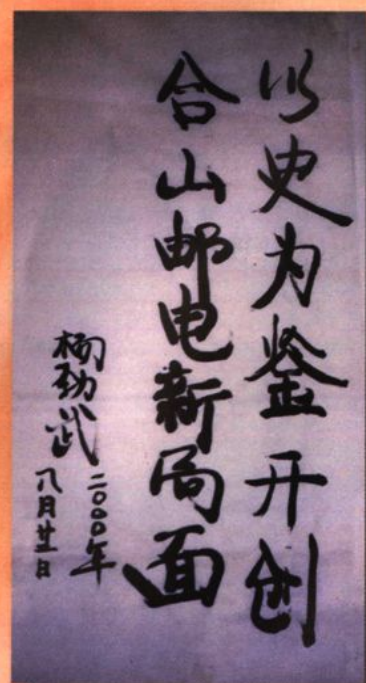 以史为鉴开创
合山邮电新局面
杨劲武
二〇〇〇年
八月廿一日